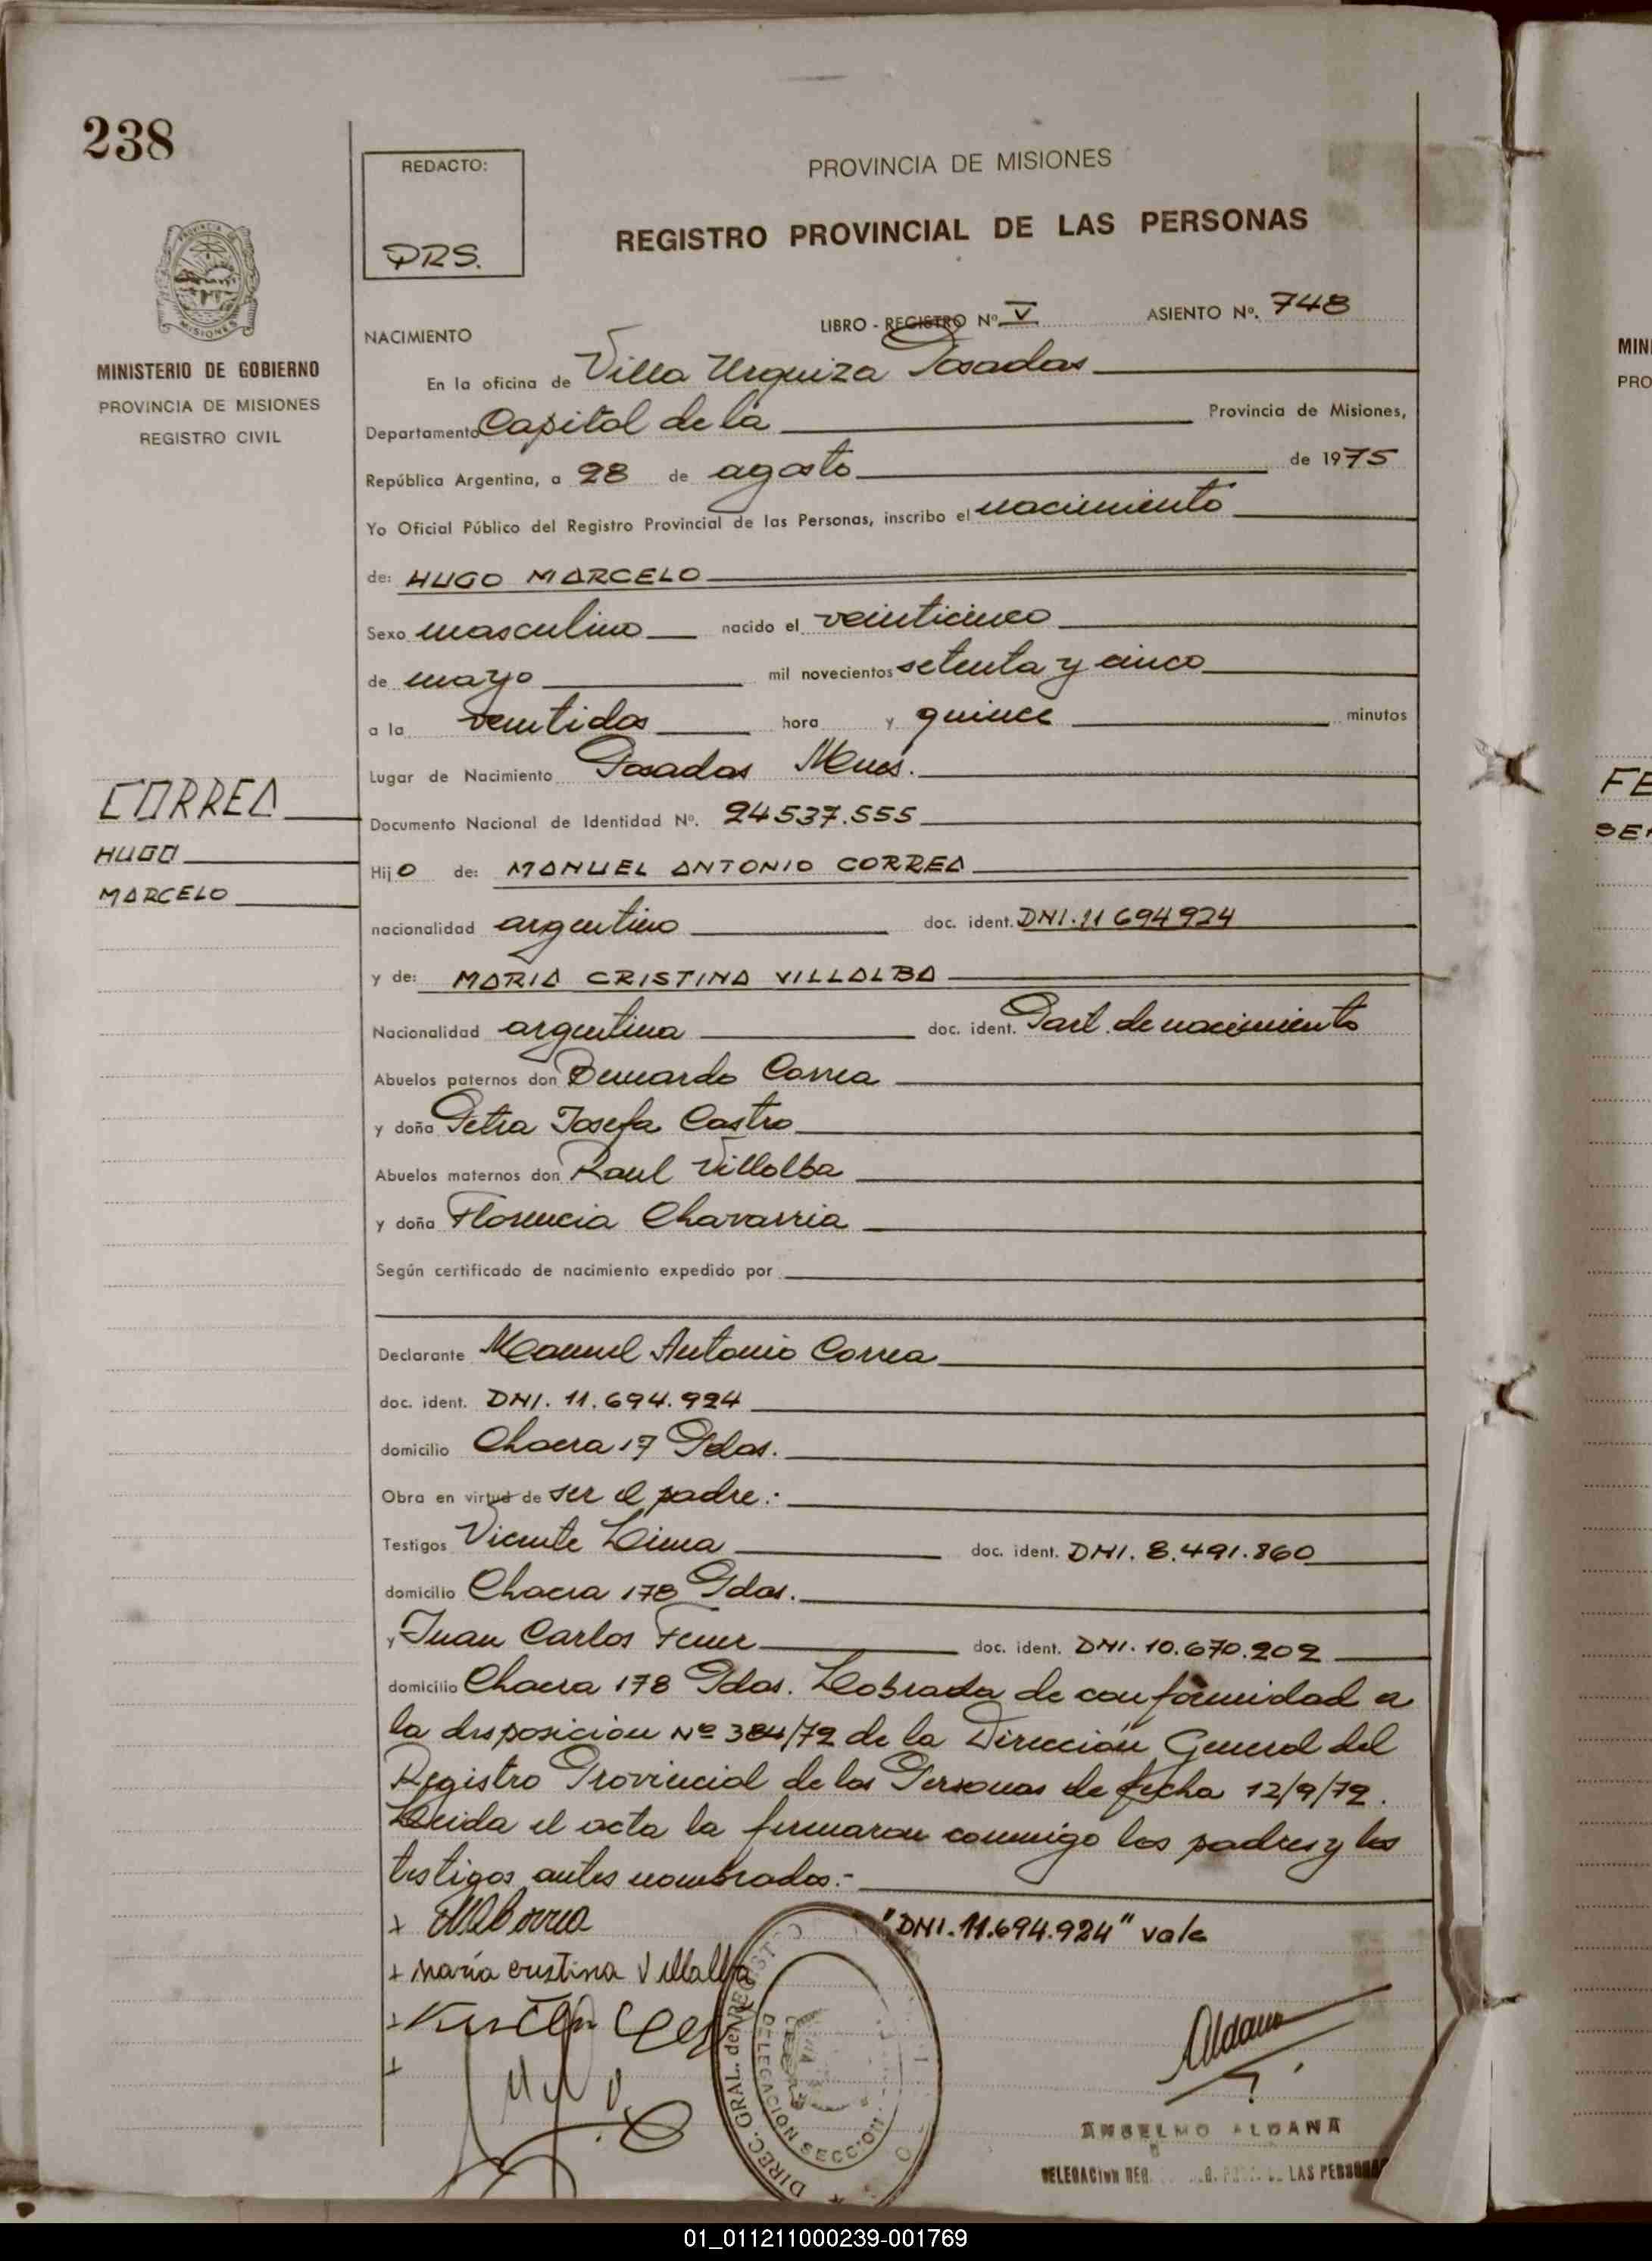 238
REDACTO:
PRS.
PROVINCIA DE MISIONES
REGISTRO PROVINCIAL DE LAS PERSONAS
MINISTERIO DE GOBIERNO
PROVINCIA DE MISIONES
REGISTRO CIVIL
LIBRO - REGISTRO Nº V ASIENTO Nº. 748
NACIMIENTO
En la oficina de Villa Urquiza Posadas
Departamento Capital de la Provincia de Misiones,
República Argentina, a 28 de agosto de 1975
Yo Oficial Público del Registro Provincial de las Personas, inscribo el nacimiento
de: HUGO MARCELO
Sexo masculino nacido el veinticinco
de mayo mil novecientos setenta y cinco
a la veintidos hora y quince minutos
Lugar de Nacimiento Posadas Mnes.
CORREA
HUGO
MARCELO
Documento Nacional de Identidad Nº. 24537.555
Hijo de: MANUEL ANTONIO CORREA
nacionalidad argentino doc. ident. DNI. 11 694 924
y de: MARIA CRISTINA VILLALBA
Nacionalidad argentina doc. ident. Part. de nacimiento
Abuelos paternos don Bernardo Correa
y doña Petra Josefa Castro
Abuelos maternos don Raul Villalba
y doña Florencia Chavarria
Según certificado de nacimiento expedido por
Declarante Manuel Antonio Correa
doc. ident. DNI. 11.694.924
domicilio Chacra 17 Pdas.
Obra en virtud de ser el padre.-
Testigos Vicente Lima doc. ident. DNI. 8.491.860
domicilio Chacra 178 Pdas.
y Juan Carlos doc. ident. DNI. 10.670.202
domicilio Chacra 178 Pdas. Labrada de conformidad a
la disposición Nº 384/72 de la Dirección General del
Registro Provincial de las Personas de fecha 12/9/72.
Leida el acta la firmaron conmigo los padres y los
testigos antes nombrados.-
"DNI. 11.694.924" vale
x MACorrea
x maría cristina Villalba
x
x
DIREC. GRAL. del REGISTRO
DELEGACION SECCION
Aldana
ANSELMO ALDANA
DELEGACION REG. LAS PERSONAS
MIN
PRO
FE
SE
01_011211000239-001769